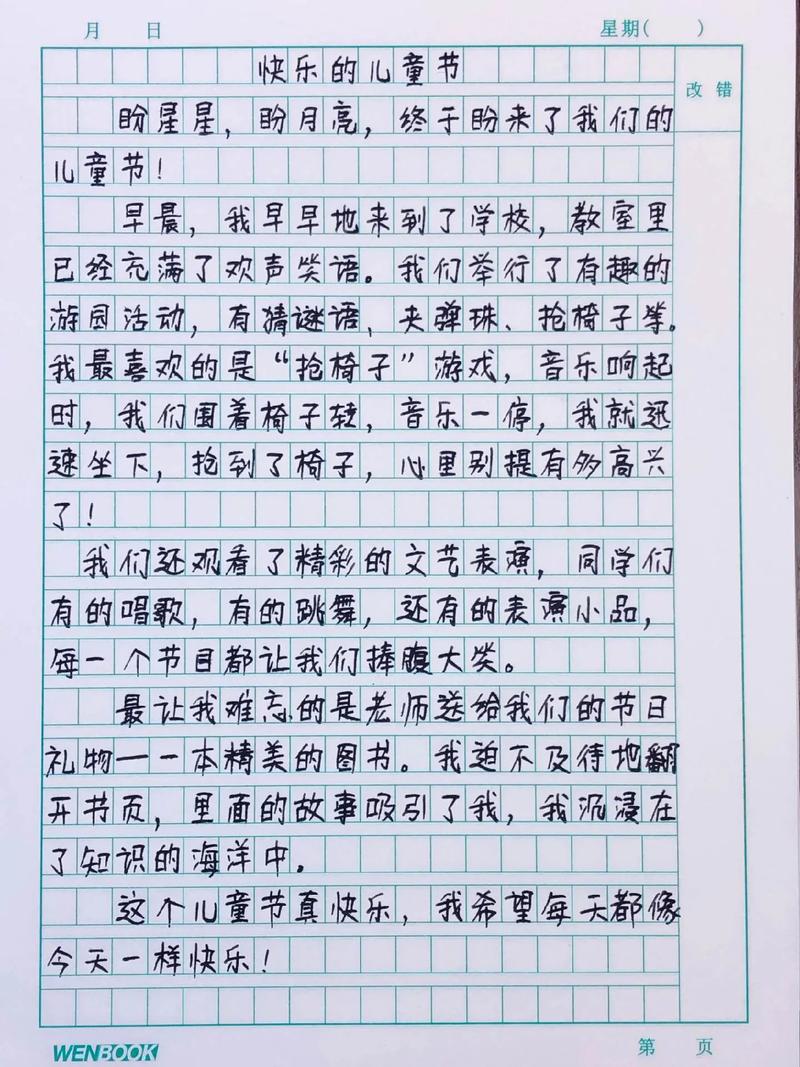 月 日 星期( )
快乐的儿童节
改错
盼星星，盼月亮，终于盼来了我们的
儿童节！
早晨，我早早地来到了学校，教室里
已经充满了欢声笑语。我们举行了有趣的
游园活动，有猜谜语、夹弹珠、抢椅子等。
我最喜欢的是“抢椅子”游戏，音乐响起
时，我们围着椅子转，音乐一停，我就迅
速坐下，抢到了椅子，心里别提有多高兴
了！
我们还观看了精彩的文艺表演，同学们
有的唱歌，有的跳舞，还有的表演小品，
每一个节目都让我们捧腹大笑。
最让我难忘的是老师送给我们的节日
礼物——一本精美的图书。我迫不及待地翻
开书页，里面的故事吸引了我，我沉浸在
了知识的海洋中。
这个儿童节真快乐，我希望每天都像
今天一样快乐！
WENBOOK 第 页